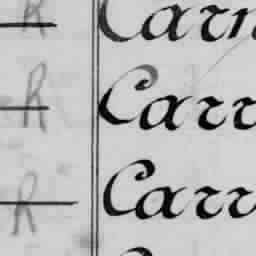 R Carn
R Carr
R Carr